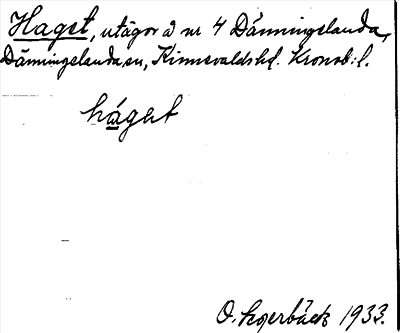 Haget, utägor å nr 4 Dänningelanda,
Dänningelanda sn, Kinnevalds hd. Kronob. l.
håget
O. Legerbäck 1933.